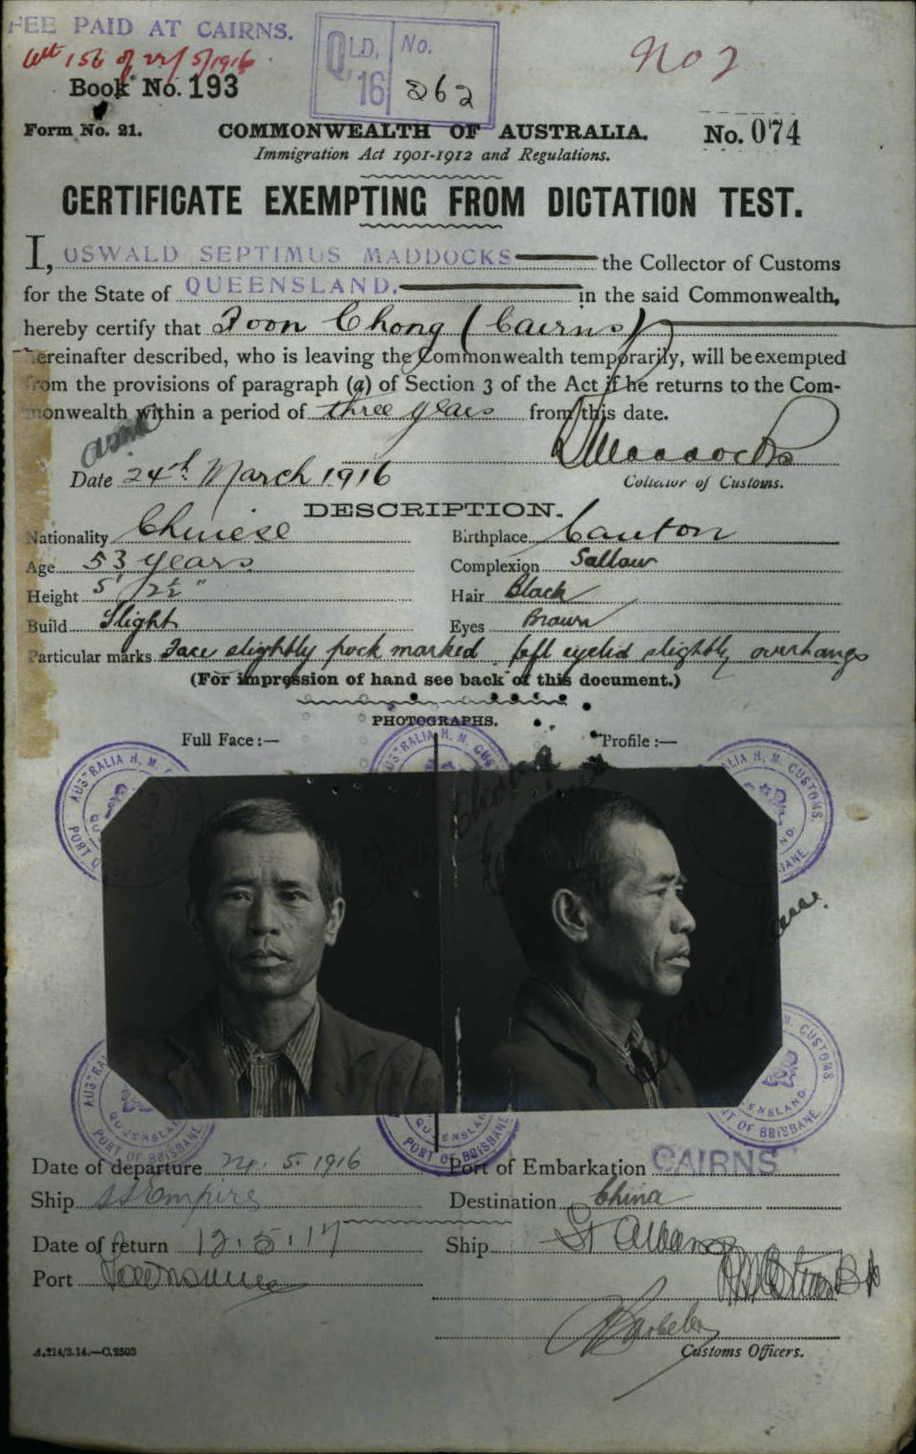 FEE PAID AT CAIRNS.
QLD. No.
'16 262
No 2
Book No. 193
Form No. 21. COMMONWEALTH OF AUSTRALIA. No. 074
Immigration Act 1901-1912 and Regulations.
CERTIFICATE EXEMPTING FROM DICTATION TEST.
I, OSWALD SEPTIMUS MADDOCKS the Collector of Customs
for the State of QUEENSLAND. in the said Commonwealth,
hereby certify that Foon Chong (Cairns)
hereinafter described, who is leaving the Commonwealth temporarily, will be exempted
from the provisions of paragraph (a) of Section 3 of the Act if he returns to the Com-
monwealth within a period of three years from this date.
Date 24th March 1916
Collector of Customs.
DESCRIPTION.
Nationality Chinese Birthplace Canton
Age 53 years Complexion Sallow
Height 5' 2½" Hair Black
Build Slight Eyes Brown
Particular marks Face slightly pock marked left eyelid slightly overhangs
(For impression of hand see back of this document.)
PHOTOGRAPHS.
Full Face :— Profile :—
AUSTRALIA H. M. CUSTOMS.
PORT OF BRISBANE
QUEENSLAND
Date of departure 24. 5. 1916 Port of Embarkation CAIRNS
Ship SS Empire Destination China
Date of return 12.5.17 Ship St Albans
Port Townsville
Customs Officers.
A.214/3.14.—C.2503